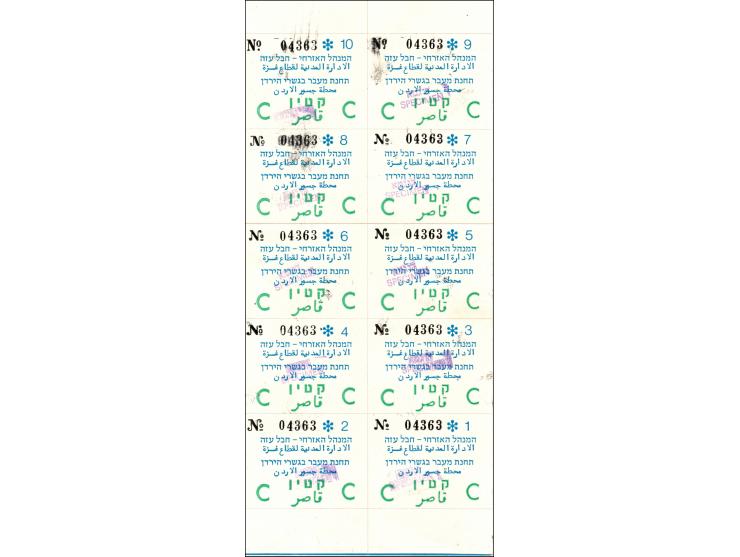 № 04363 * 10
המנהל האזרחי - חבל עזה
الادارة المدنية لقطاع غزة
תחנת מעבר בגשרי הירדן
محطة جسور الاردن
C קטין C
قاصر
№ 04363 * 9
המנהל האזרחי - חבל עזה
الادارة المدنية لقطاع غزة
תחנת מעבר בגשרי הירדן
محطة جسور الاردن
SPECIMEN
C קטין C
قاصر
№ 04363 * 8
המנהל האזרחי - חבל עזה
الادارة المدنية لقطاع غزة
תחנת מעבר בגשרי הירדן
محطة جسور الاردن
C קטין C
قاصر
№ 04363 * 7
המנהל האזרחי - חבל עזה
الادارة المدنية لقطاع غزة
תחנת מעבר בגשרי הירדן
محطة جسور الاردن
SPECIMEN
C קטין C
قاصر
№ 04363 * 6
המנהל האזרחי - חבל עזה
الادارة المدنية لقطاع غزة
תחנת מעבר בגשרי הירדן
محطة جسور الاردن
C קטין C
قاصر
№ 04363 * 5
המנהל האזרחי - חבל עזה
الادارة المدنية لقطاع غزة
תחנת מעבר בגשרי הירדן
محطة جسور الاردن
SPECIMEN
C קטין C
قاصر
№ 04363 * 4
המנהל האזרחי - חבל עזה
الادارة المدنية لقطاع غزة
תחנת מעבר בגשרי הירדן
محطة جسور الاردن
C קטין C
قاصر
№ 04363 * 3
המנהל האזרחי - חבל עזה
الادارة المدنية لقطاع غزة
תחנת מעבר בגשרי הירדן
محطة جسور الاردن
C קטין C
قاصر
№ 04363 * 2
המנהל האזרחי - חבל עזה
الادارة المدنية لقطاع غزة
תחנת מעבר בגשרי הירדן
محطة جسور الاردن
C קטין C
قاصر
№ 04363 * 1
המנהל האזרחי - חבל עזה
الادارة المدنية لقطاع غزة
תחנת מעבר בגשרי הירדן
محطة جسور الاردن
C קטין C
قاصر